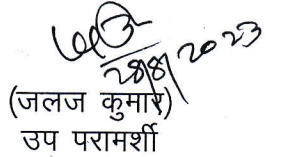 28/8/2023
(जलज कुमार)
उप परामर्शी